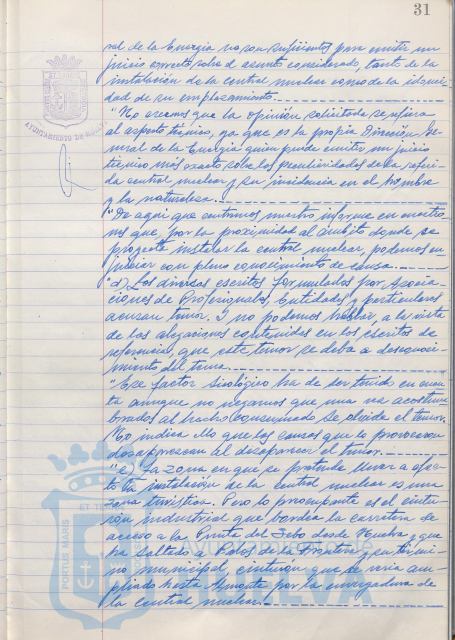 31
ral de la Energia no son suficientes para emitir un
juicio correcto sobre el asunto considerado, tanto de la
instalación de la central nuclear como de la idonei-
dad de su emplazamiento.
"No creemos que la opinión solicitada se refiera
al aspecto técnico, ya que es la propia Dirección Ge-
neral de la Energia quien puede emitir un juicio
técnico más exacto sobre las peculiaridades de la referi-
da central nuclear y su incidencia en el hombre
y la naturaleza.
"De aqui que centremos nuestro informe en cuestio-
nes que, por la proximidad al ámbito donde se
proyecta instalar la central nuclear, podemos en-
juiciar con pleno conocimiento de causa.
"d) Los diversos escritos formulados por Asocia-
ciones de Profesionales, Entidades y particulares
acusan temor. Y no podemos hablar, a la vista
de las alegaciones contenidas en los escritos de
referencia, que este temor se deba a desconoci-
miento del tema.
"Ese factor sicológico ha de ser tenido en cuen-
ta aunque no negamos que una vez acostum-
brados al hecho consumado se olvida el temor.
No indica ello que las causas que lo provocan
desaparezcan al desaparecer el temor.
"e) La zona en que se pretende llevar a efec-
to la instalación de la central nuclear es una
zona turística. Pero lo preocupante es el cintu-
rón industrial que bordea la carretera de
acceso a la Punta del Sebo desde Huelva y que
ha saltado a Palos de la Frontera y su térmi-
no municipal, cinturón que se veria am-
pliado hasta Almonte por la envergadura de
la central nuclear.
AYUNTAMIENTO DE HUELVA
PORTUS MARIS
HUELVA